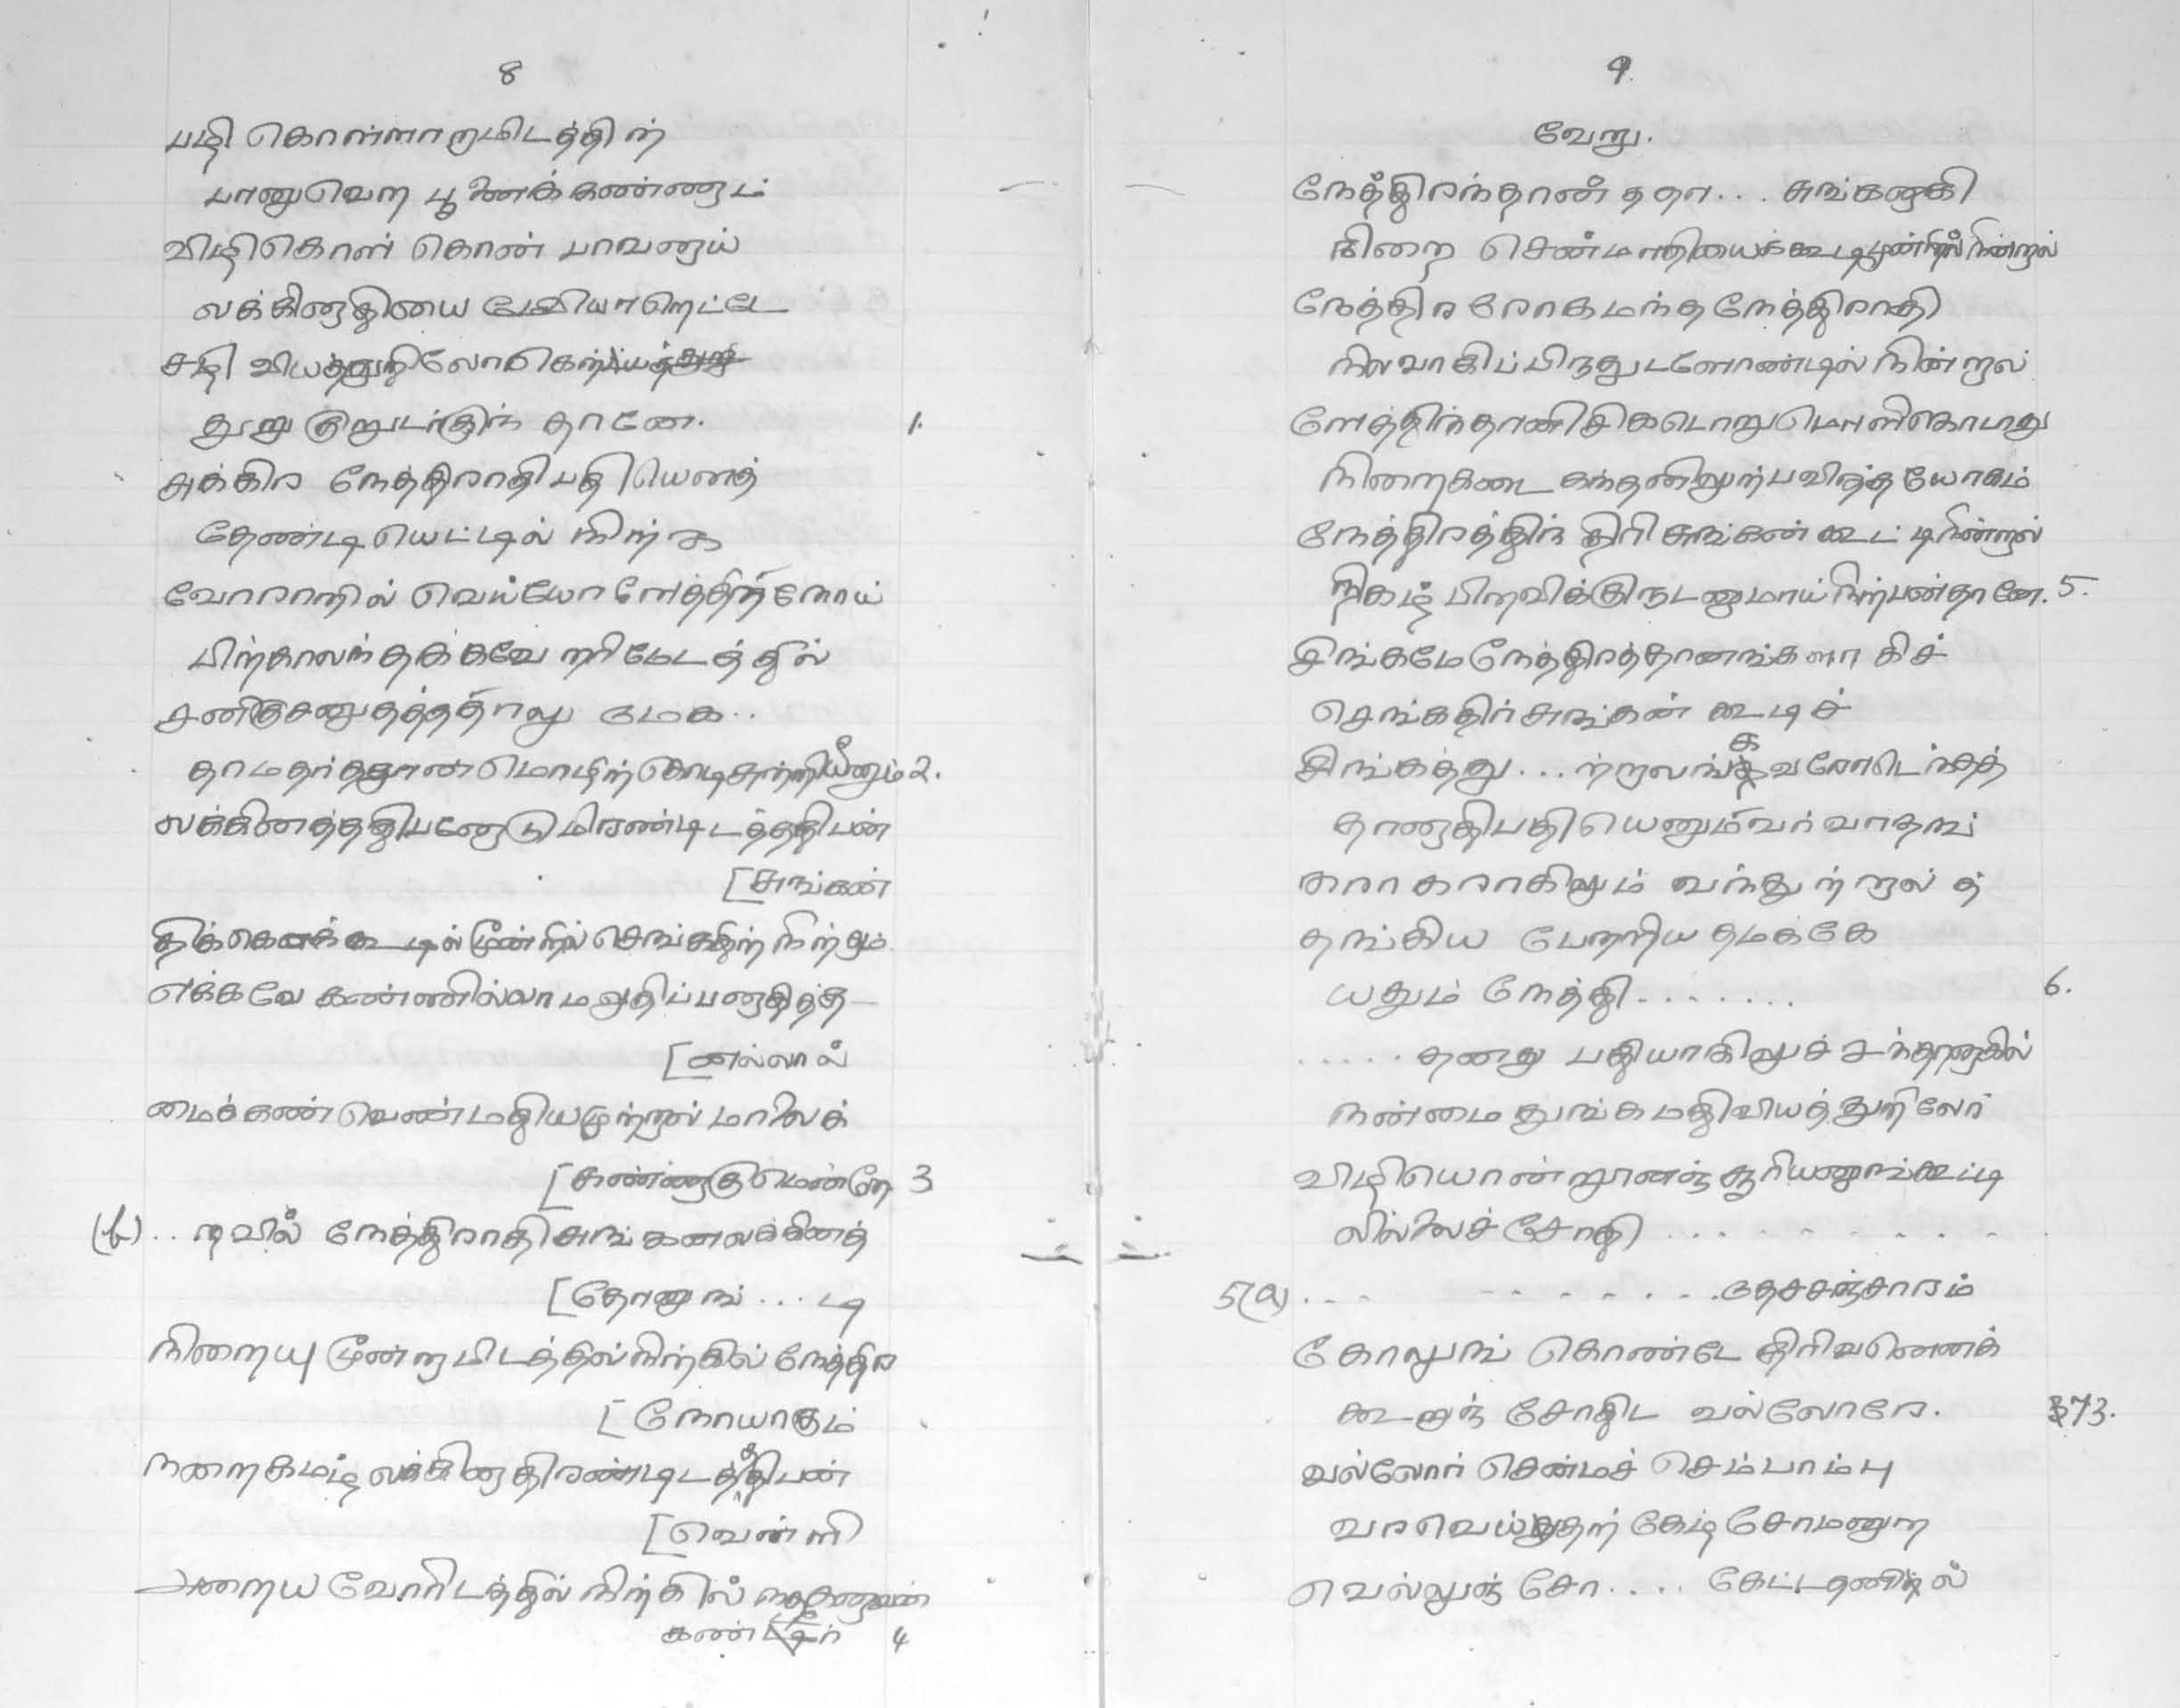 8
பழி கொள்ளாறமிடத்தின்
பானுவெற பூணைக் கண்ணுடன்
விழிகொள் கொண் பாவனாய்
லக்கினாதியை மேவியாறெட்டே
சழி வியத்துறிலோர்கெற்
துறு குறுடர்குந் தானே. 1.
அக்கிர நேத்திராதிபதியெனத்
தேண்டி யெட்டில் நிற்க
வோராறில் வெய்யோ னேத்திர நோய்
பிற்காலந் தக்கவே றிமேடத்தில்
சனிகுசனுதத்தத்தாலு மேக..
தாமதர்தானன் மொழிந் கொடிசுற்றியீனும் 2.
லக்கினத்ததிபனோடு மிரண்டிடத்ததிபன்
[சுங்கன்
திக்கெனக்கூடில் மூன்றில் செங்கதிர் நிற்கும்
எக்கவே கண்ணில்லாமலுதிப்பனாதித்த
[னல்லால்
மைக்கண் வெண்மதியமுற்றால் மாலைக்
[கண்ணாகுமென்றே 3
(b) .. றவில் நேத்திராதி சுங்கனலக்கினத்
[தோனுங் ... டி
நிறையு மூன்றாமிடத்தில் நிற்கில் நேத்திர
[நோயாகும்
நறைகமழ் லக்கினாதிரண்டிடத்ததிபன்
[வெள்ளி
அறைய வோரிடத்தில் நிற்கில்
கண் 4
9.
வேறு.
நேத்திரந்தான் ததா... சுங்கனாகி
நிறை செண்மாதியைக்கூடி மூன்றில் நின்றால்
நேத்திர ரோகமந்த நேத்திராதி
நிலவாகிப் பிந்துடனோண்டில் நின்றால்
னேத்திரந்தானிசிகடொறு மொளிகொடாது
நிறைகடை கந்தனிலுற்பவித்த யோகம்
நேத்திரத்திற் திரி சுங்கன் கூட்டி நின்றால்
நிகழ் பிறவிக்குருடனுமாய் நிற்பன்தானே. 5.
சிங்கமே நேத்திரத்தானங்களாகிச்
செங்கதிர் சுங்கன் கூடிச்
சிங்கத்து... ற்றாலங்கவரோடெந்தத்
தானாதிபதியெனும்வர் வாதாங்
காரகராகிலும் வந்துற்றால் த்
தங்கிய பேறறிய தமக்கே
யதும் நேத்தி........ 6.
..... தனது பதியாகிலுச் சந்தானாகில்
நண்மை துங்க மதிவியத்துறிலோர்
விழியொன்றூனஞ் சூரியனுங்கூட்டி
லில்லைச் சோதி ..........
5(a) .......... தேசசஞ்சாரம்
கோலுங் கொண்டே திரிவனெனக்
கூறுஞ் சோதிட வல்லோரே. 73.
வல்லோர் சென்மச் செம்பாம்பு
வரவெய்துதற் கேழ் சோமனுற
வெல்லுஞ் சோ.... கேட்டதனிற்